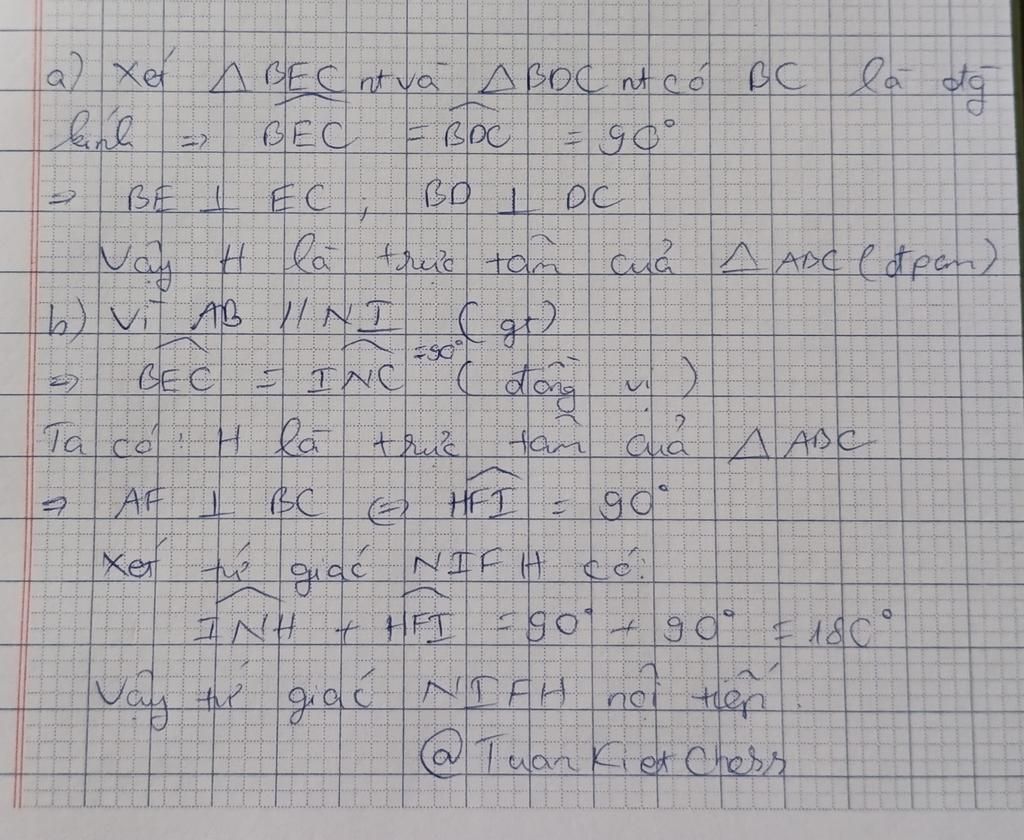 a) Xét △ BEC nt và △ BDC nt có BC là đg
kính => BEC = BDC = 90°
=> BE ⊥ EC, BD ⊥ DC
Vậy H là trực tâm của △ ABC (đpcm)
b) Vì AB // NI (gt)
=> BEC = INC =90° (đồng vị)
Ta có: H là trực tâm của △ ABC
=> AF ⊥ BC <=> HFI = 90°
Xét tứ giác NIFH có:
INH + HFI = 90° + 90° = 180°
Vậy tứ giác NIFH nội tiếp.
@TuanKietChess